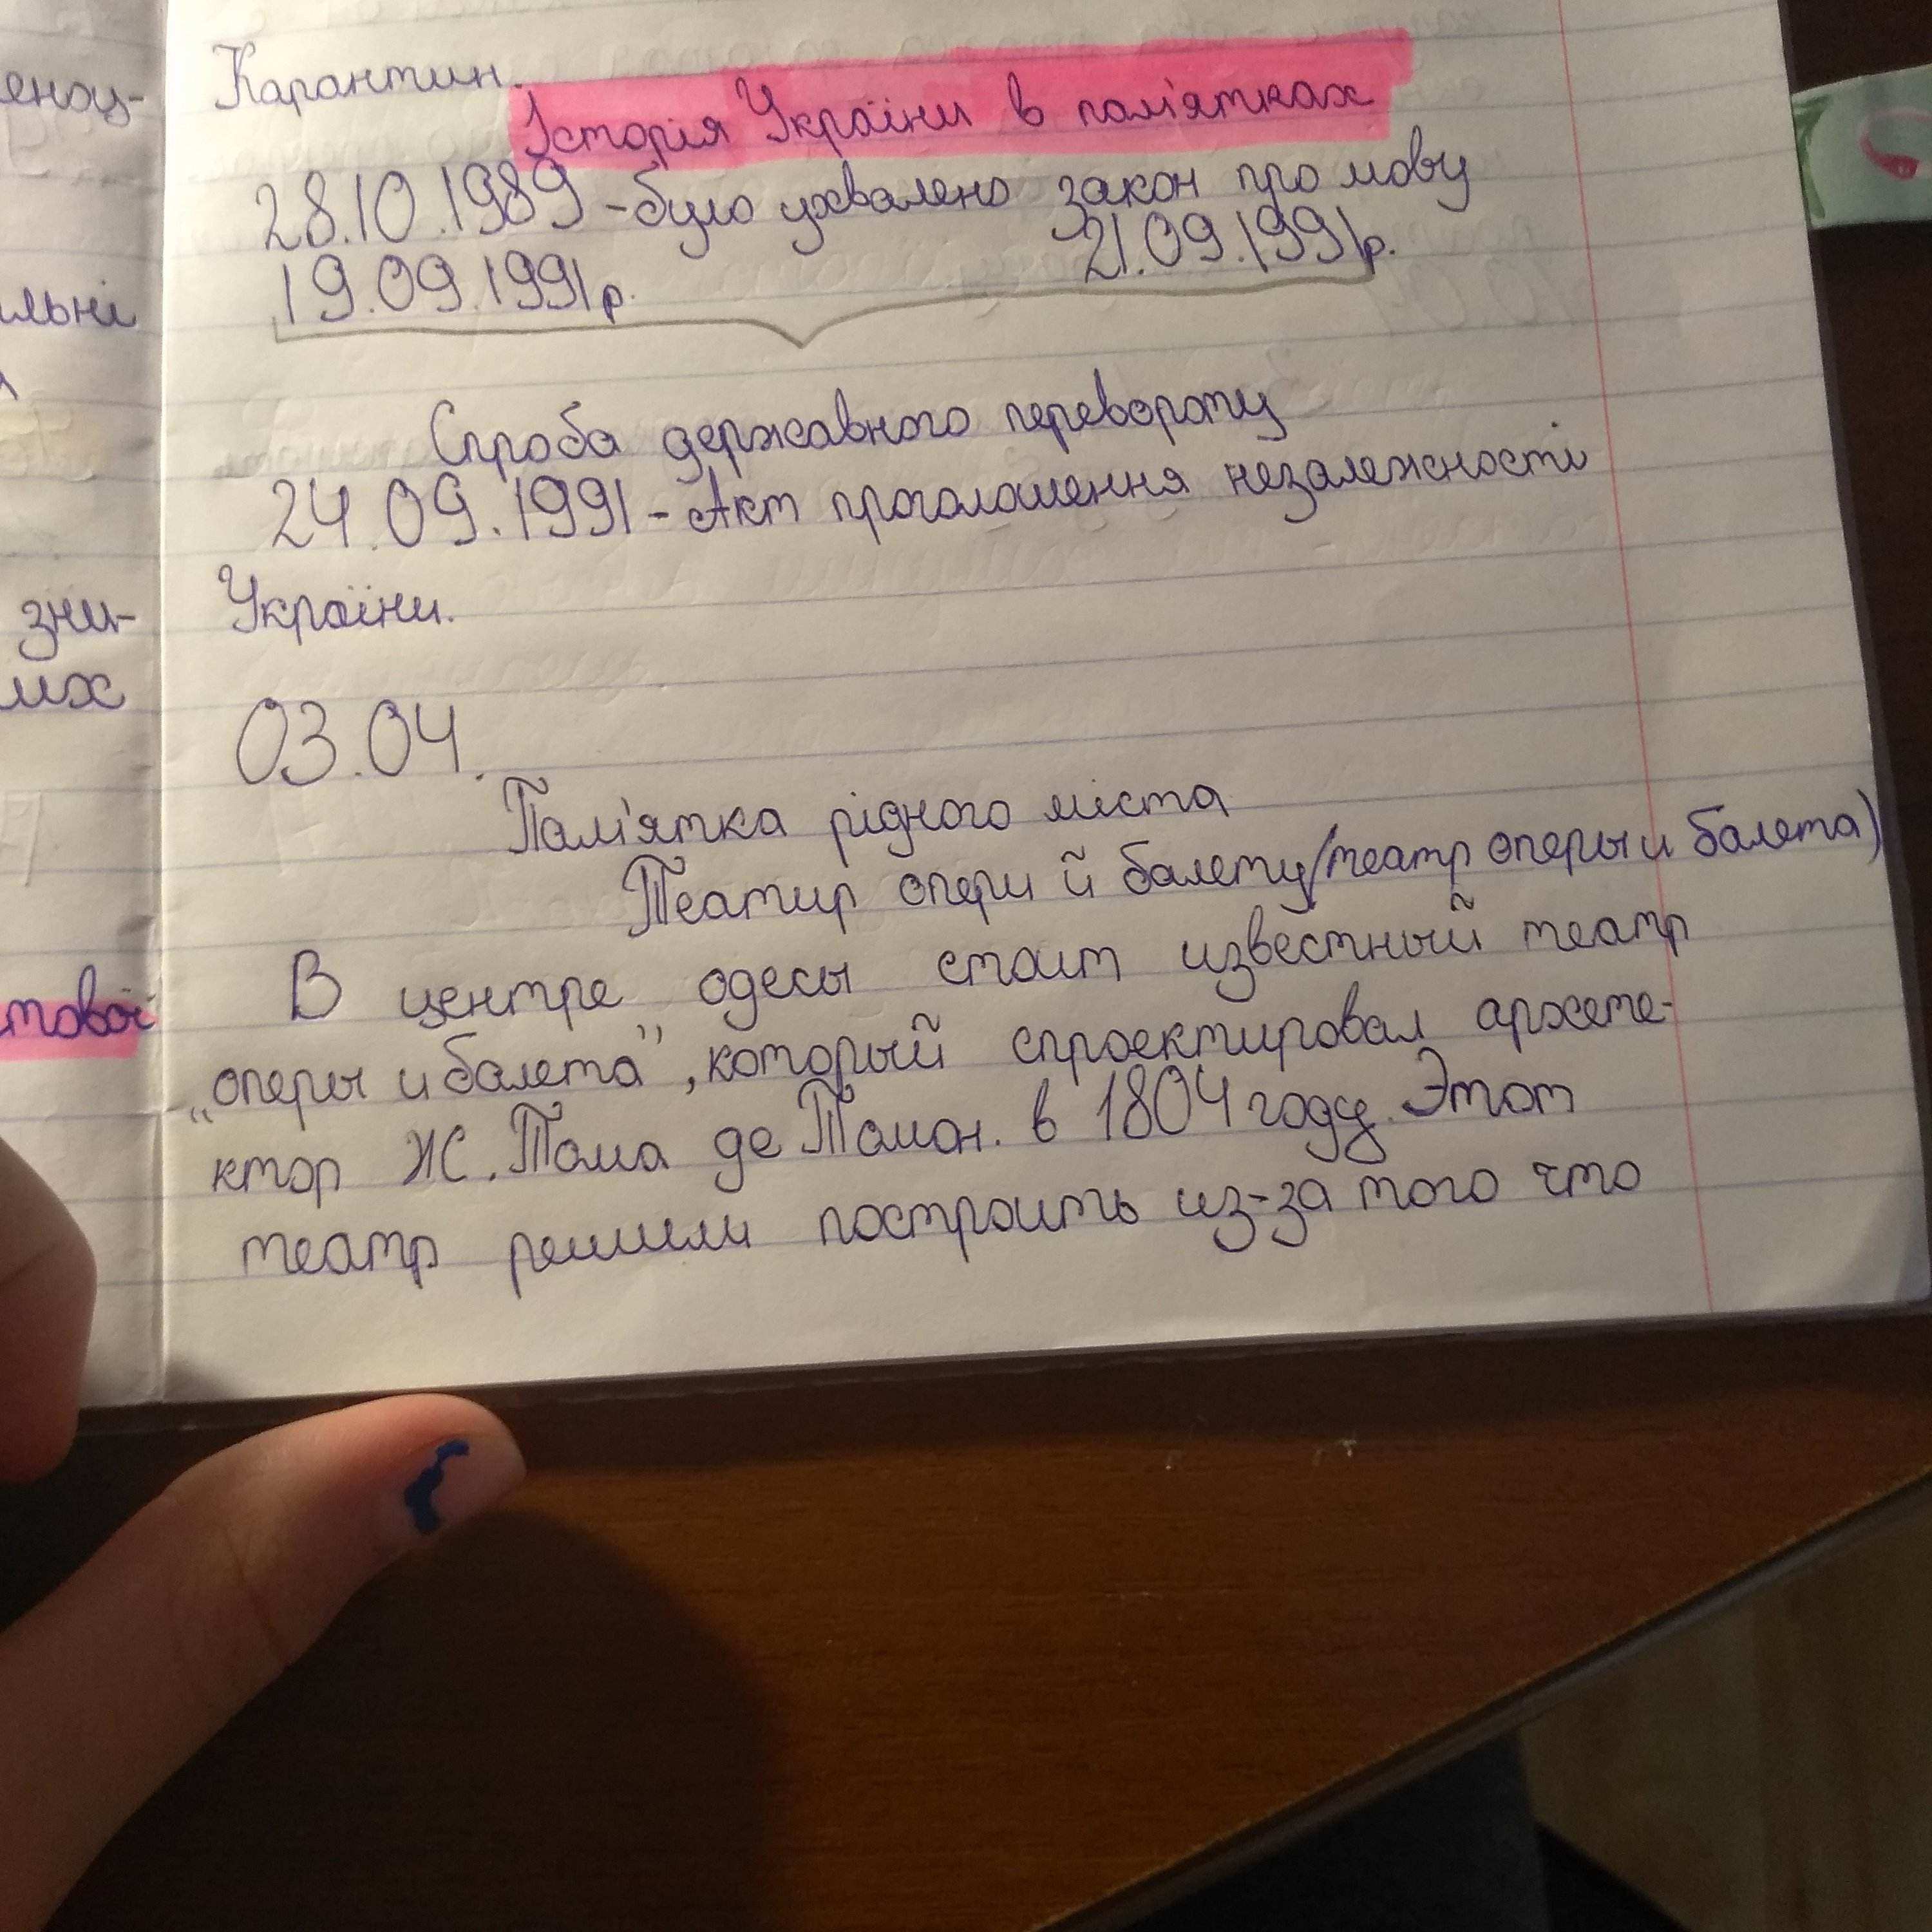 єноц-
льні
зни-
их
тової
Карантин.
Історія України в пам'ятках
28.10.1989 - було ухвалено закон про мову
19.09.1991р. 21.09.1991р.
Спроба державного перевороту
24.09.1991 - Акт проголошення незалежності
України.
03.04.
Пам'ятка рідного міста
Театир опери й балету(театр оперы и балета)
В центре одесы стоит известный театр
„оперы и балета", который спроектировал архете-
ктор Ж. Тома де Томон. в 1804 году. Этот
театр решили построить из-за того что